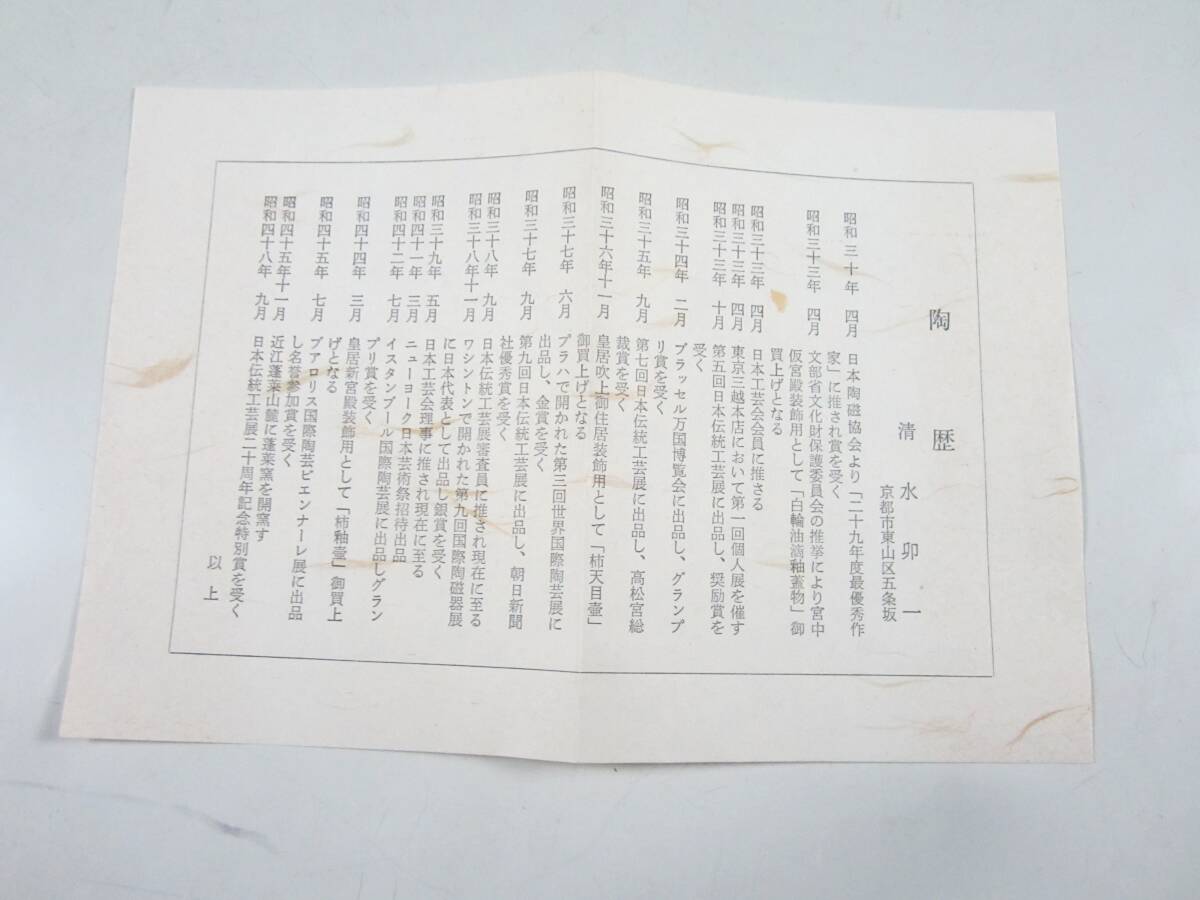 陶歴
清水卯一
京都市東山区五条坂
昭和三十年 四月 日本陶磁協会より「二十九年度最優秀作
家」に推され賞を受く
昭和三十三年 四月 文部省文化財保護委員会の推挙により宮中
仮宮殿装飾用として「白輪油滴釉蓋物」御
買上げとなる
昭和三十三年 四月 日本工芸会会員に推さる
昭和三十三年 四月 東京三越本店において第一回個人展を催す
昭和三十三年 十月 第五回日本伝統工芸展に出品し、奨励賞を
受く
昭和三十四年 二月 ブラッセル万国博覧会に出品し、グランプ
リ賞を受く
昭和三十五年 九月 第七回日本伝統工芸展に出品し、高松宮総
裁賞を受く
昭和三十六年十一月 皇居吹上御住居装飾用として「柿天目壷」
御買上げとなる
昭和三十七年 六月 プラハで開かれた第三回世界国際陶芸展に
出品し、金賞を受く
昭和三十七年 九月 第九回日本伝統工芸展に出品し、朝日新聞
社優秀賞を受く
昭和三十八年 九月 日本伝統工芸展審査員に推され現在に至る
昭和三十八年十一月 ワシントンで開かれた第九回国際陶磁器展
に日本代表として出品し銀賞を受く
昭和三十九年 五月 日本工芸会理事に推され現在に至る
昭和四十一年 三月 ニューヨーク日本芸術祭招待出品
昭和四十二年 七月 イスタンブール国際陶芸展に出品しグラン
プリ賞を受く
昭和四十四年 三月 皇居新宮殿装飾用として「柿釉壷」御買上
げとなる
昭和四十五年 七月 ブアロリス国際陶芸ビエンナーレ展に出品
し名誉参加賞を受く
昭和四十五年十一月 近江蓬莱山麓に蓬莱窯を開窯す
昭和四十八年 九月 日本伝統工芸展二十周年記念特別賞を受く
以上